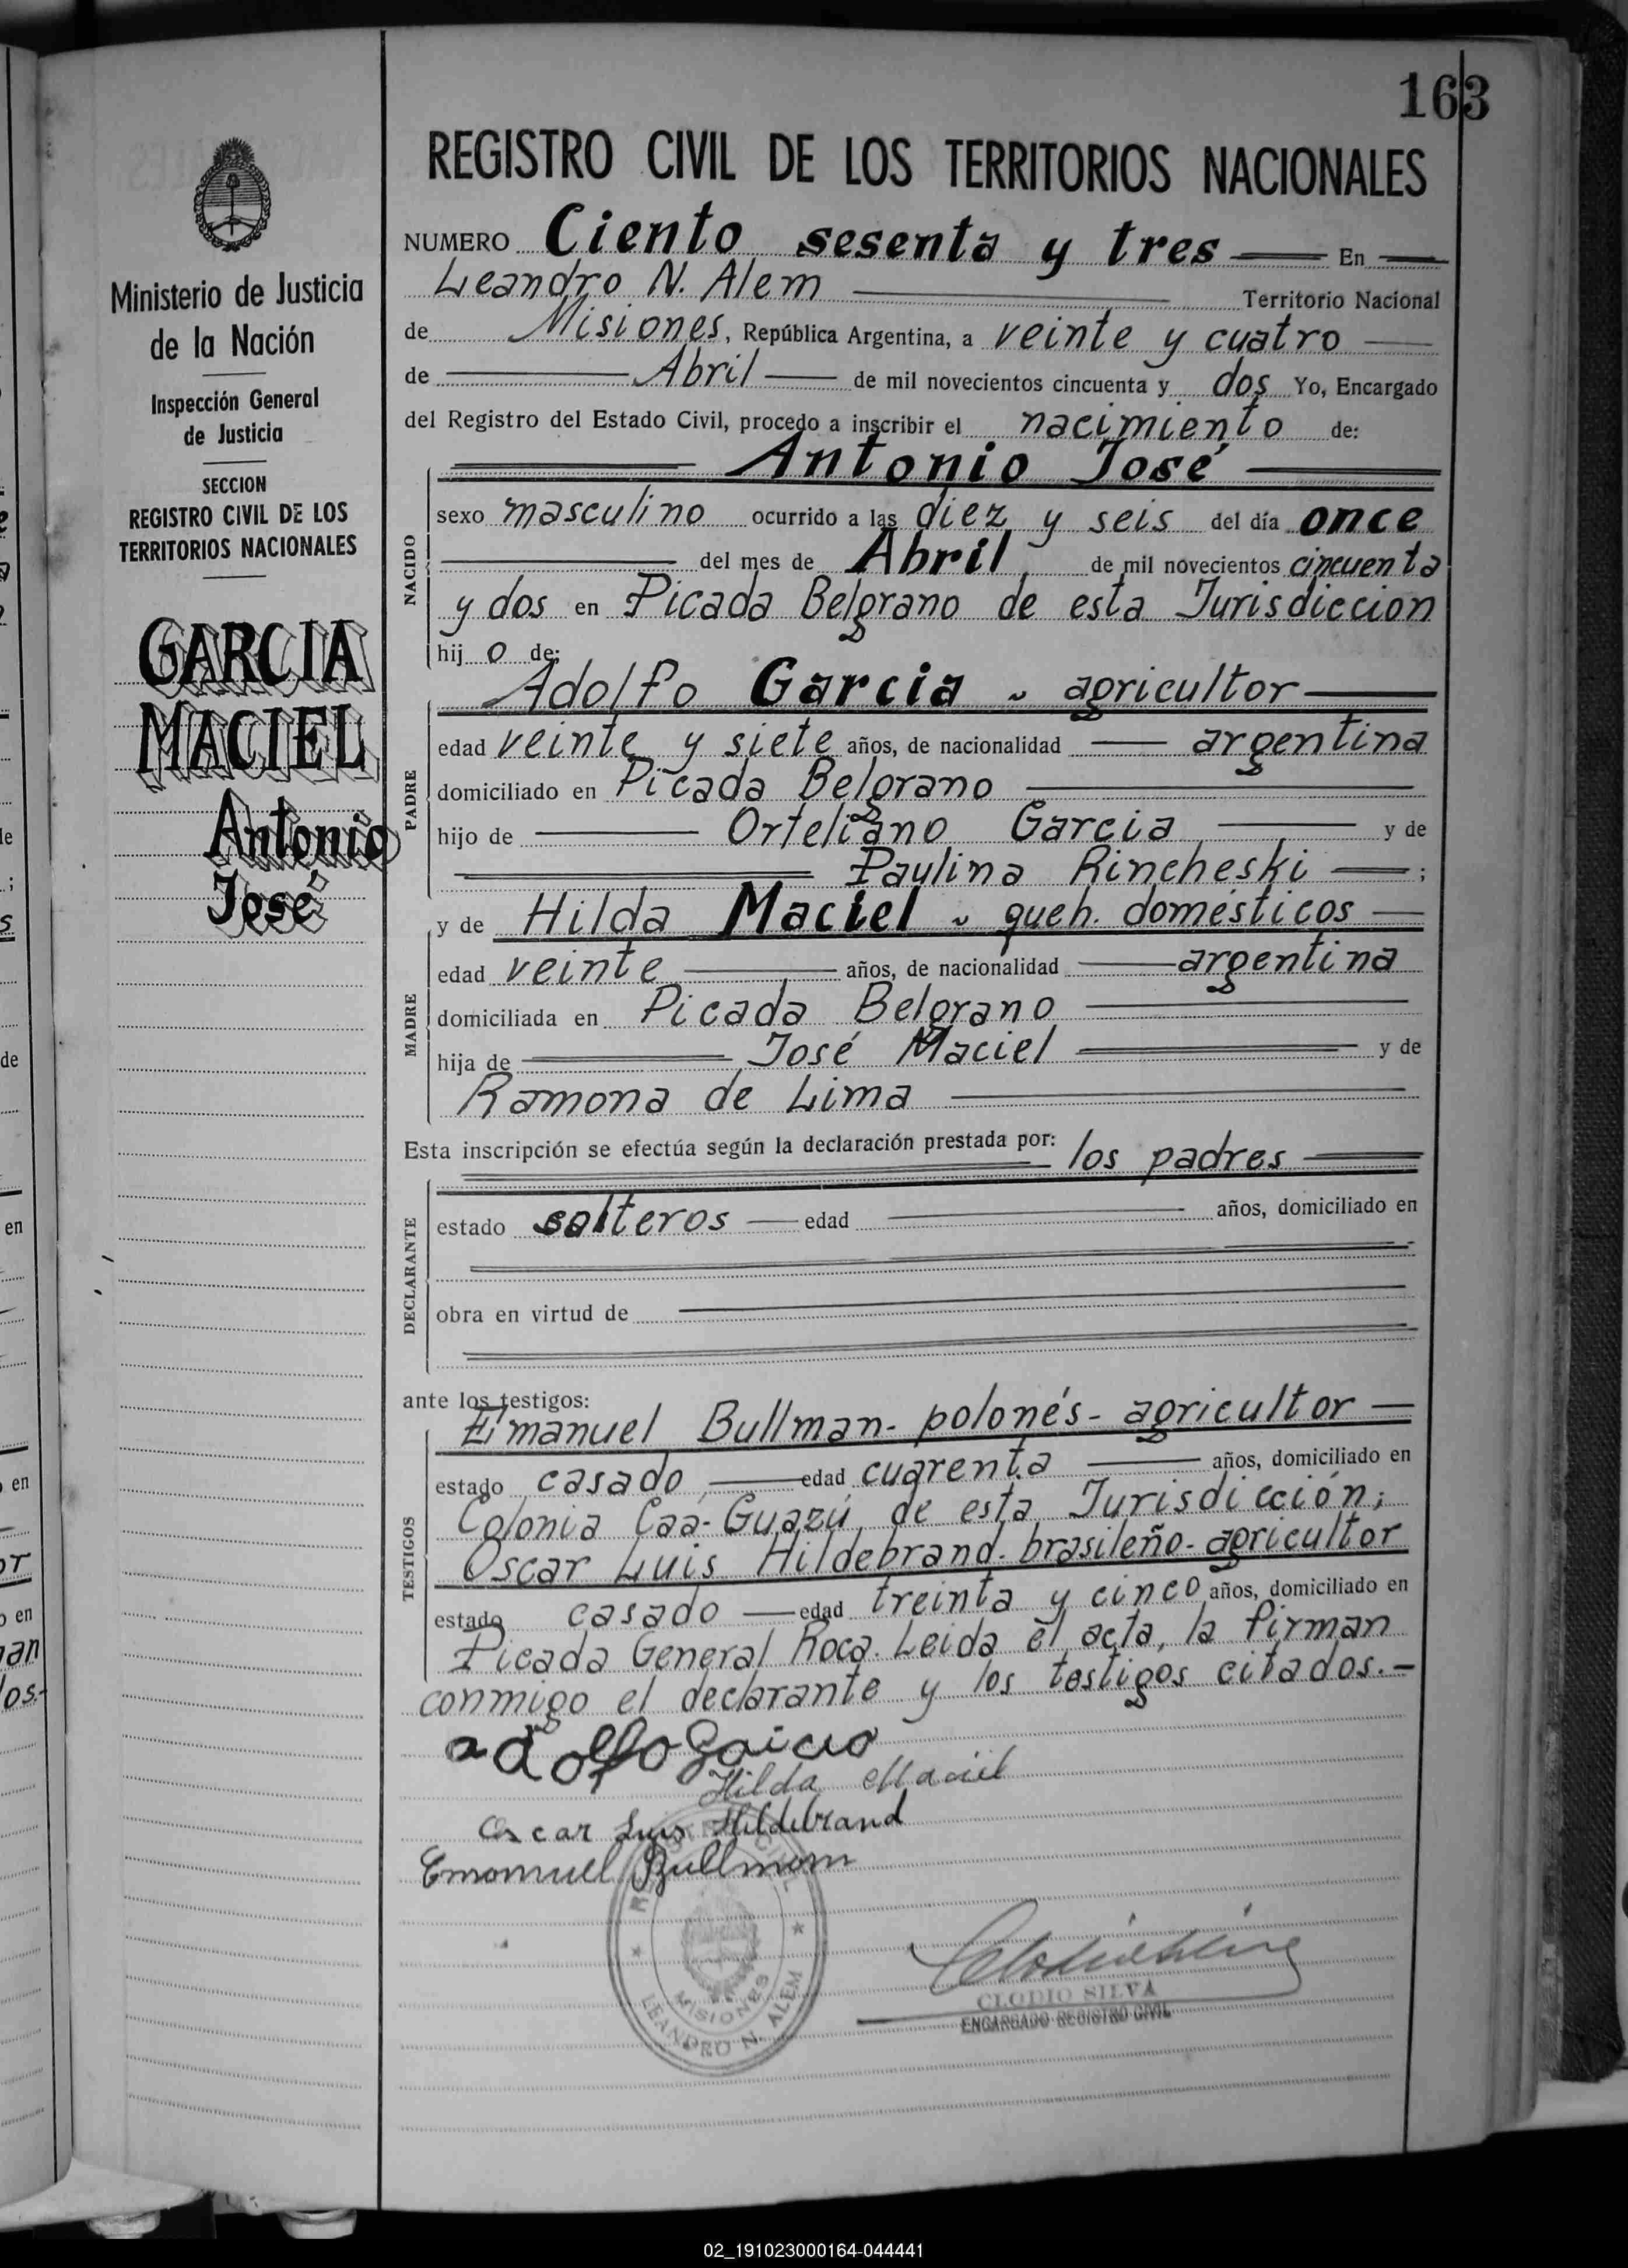 163
REGISTRO CIVIL DE LOS TERRITORIOS NACIONALES
Ministerio de Justicia
de la Nación
Inspección General
de Justicia
SECCION
REGISTRO CIVIL DE LOS
TERRITORIOS NACIONALES
GARCIA
MACIEL
Antonio
José
NUMERO Ciento sesenta y tres En
Leandro N. Alem Territorio Nacional
de Misiones, República Argentina, a veinte y cuatro
de Abril de mil novecientos cincuenta y dos Yo, Encargado
del Registro del Estado Civil, procedo a inscribir el nacimiento de:
Antonio José
NACIDO
sexo masculino ocurrido a las diez y seis del día once
del mes de Abril de mil novecientos cincuenta
y dos en Picada Belgrano de esta Jurisdiccion
hijo de:
Adolfo Garcia - agricultor
PADRE
edad veinte y siete años, de nacionalidad argentina
domiciliado en Picada Belgrano
hijo de Orteliano Garcia y de
Paulina Rincheski ;
y de Hilda Maciel - queh. domésticos
MADRE
edad veinte años, de nacionalidad argentina
domiciliada en Picada Belgrano
hija de José Maciel y de
Ramona de Lima
Esta inscripción se efectúa según la declaración prestada por: los padres
DECLARANTE
estado solteros edad años, domiciliado en
obra en virtud de
ante los testigos:
Emanuel Bullman- polonés- agricultor
TESTIGOS
estado casado edad cuarenta años, domiciliado en
Colonia Caá-Guazú de esta Jurisdicción;
Oscar Luis Hildebrand- brasileño- agricultor
estado casado edad treinta y cinco años, domiciliado en
Picada General Roca. Leida el acta, la firman
conmigo el declarante y los testigos citados.-
adolfo Garcia
Hilda Maciel
Oscar Luis Hildebrand
Emanuel Bullman
REGISTRO CIVIL
MISIONES
LEANDRO N. ALEM
CLODIO SILVA
ENCARGADO REGISTRO CIVIL
02_191023000164-044441